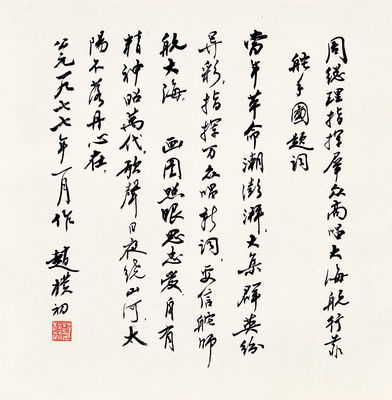 周总理指挥群众高唱大海航行靠
舵手图题词
当年革命潮澎湃,大集群英纷
异彩。指挥万众唱新词,要信舵师
航大海。画图照眼思忠爱,自有
精神昭万代。歌声日夜绕山河,太
阳不落丹心在。
公元一九七七年一月作 赵朴初